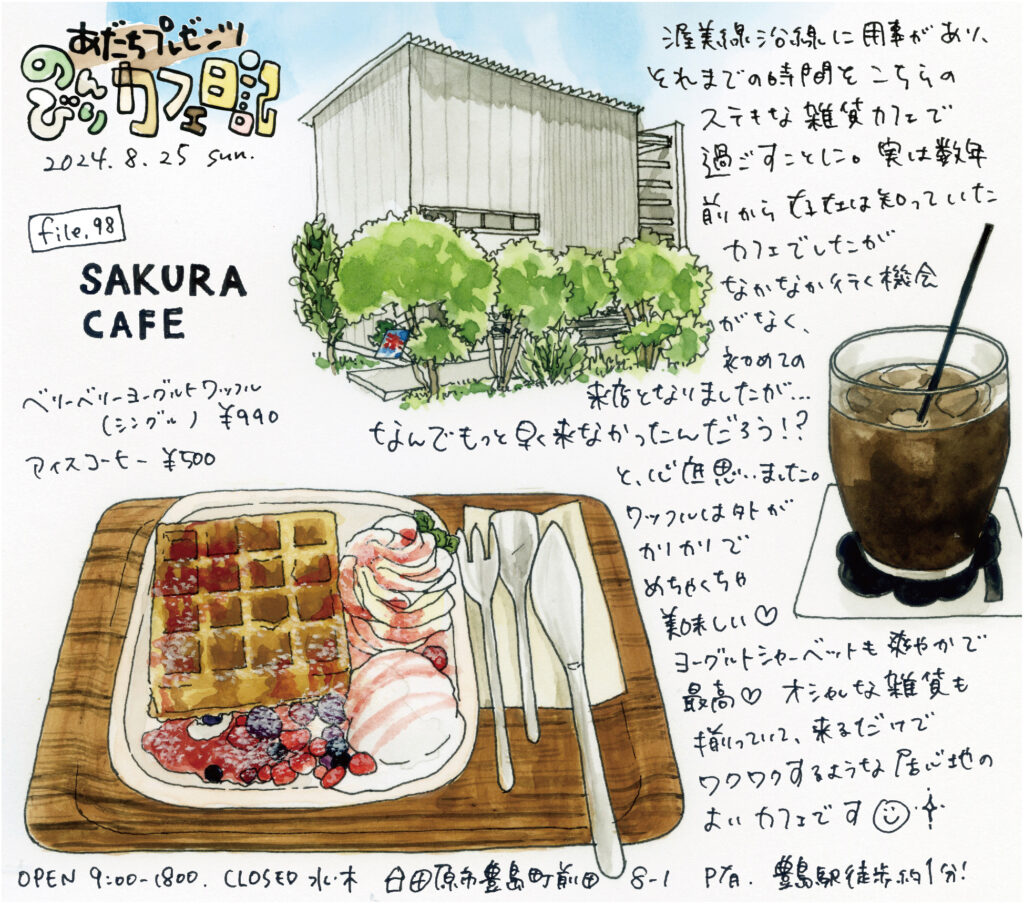 あだちプレゼンツ
のんびりカフェ日記
2024.8.25 sun.
file.98
SAKURA
CAFE
ベリーベリーヨーグルトワッフル
(シングル) ¥990
アイスコーヒー ¥500
渥美線沿線に用事があり、
それまでの時間をこちらの
ステキな雑貨カフェで
過ごすことに。実は数年
前から存在は知っていた
カフェでしたが
なかなか行く機会
がなく、
初めての
来店となりましたが…
なんでもっと早く来なかったんだろう!?
と、心底思いました。
ワッフルは外が
カリカリで
めちゃくちゃ
美味しい♡
ヨーグルトシャーベットも爽やかで
最高♡ オシャレな雑貨も
揃っていて、来るだけで
ワクワクするような居心地の
よいカフェです
OPEN 9:00-1800. CLOSED 水・木 田原市豊島町前田 8-1 P有. 豊島駅徒歩約1分!